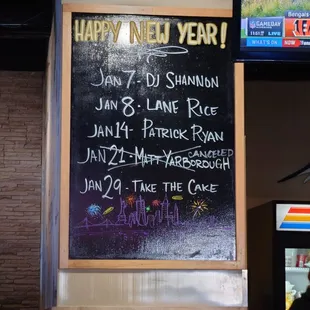 HAPPY NEW YEAR!
JAN 7 - DJ SHANNON
JAN 8 - LANE RICE
JAN 14 - PATRICK RYAN
CANCELED
JAN 21 - MATT YARBOROUGH
JAN 29 - TAKE THE CAKE
GAMEDAY
LIVE
Bengals
WHAT'S ON
NOW